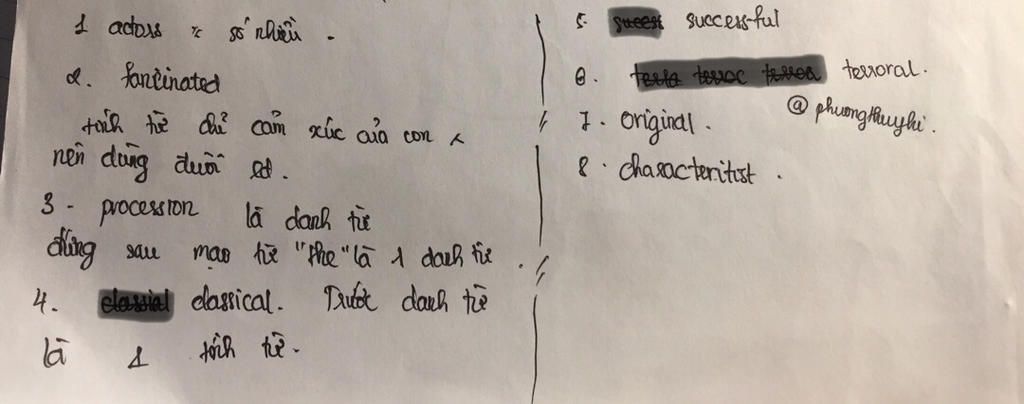 1 actors vì số nhiều.
2. fancinated
tính từ chỉ cảm xúc của con
nên dùng đuôi ed.
3 - procession là danh từ
đứng sau mạo từ "the" là 1 danh từ.
4. classical. Trước danh từ
là 1 tính từ.
5. successful
6. terroral.
@phuongthuyhi.
7. original.
8. characteritist.